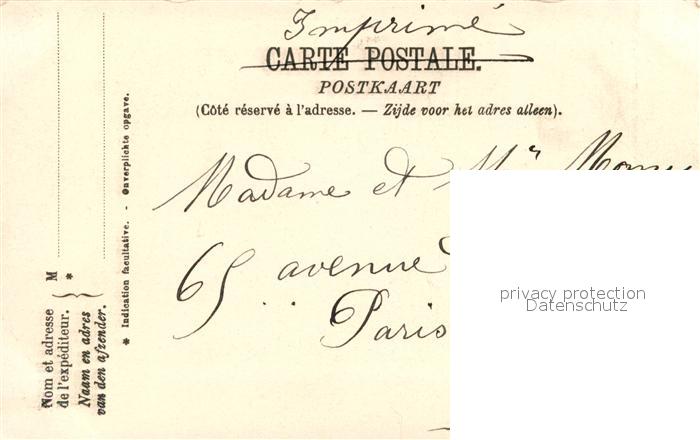 Imprimé
CARTE POSTALE.
POSTKAART
(Côté réservé à l'adresse. — Zijde voor het adres alleen).
Madame et Mr
65 avenue
Paris
privacy protection
Datenschutz
* Indication facultative. - Onverplichte opgave.
M
*
Nom et adresse
de l'expéditeur.
Naam en adres
van den afzender.